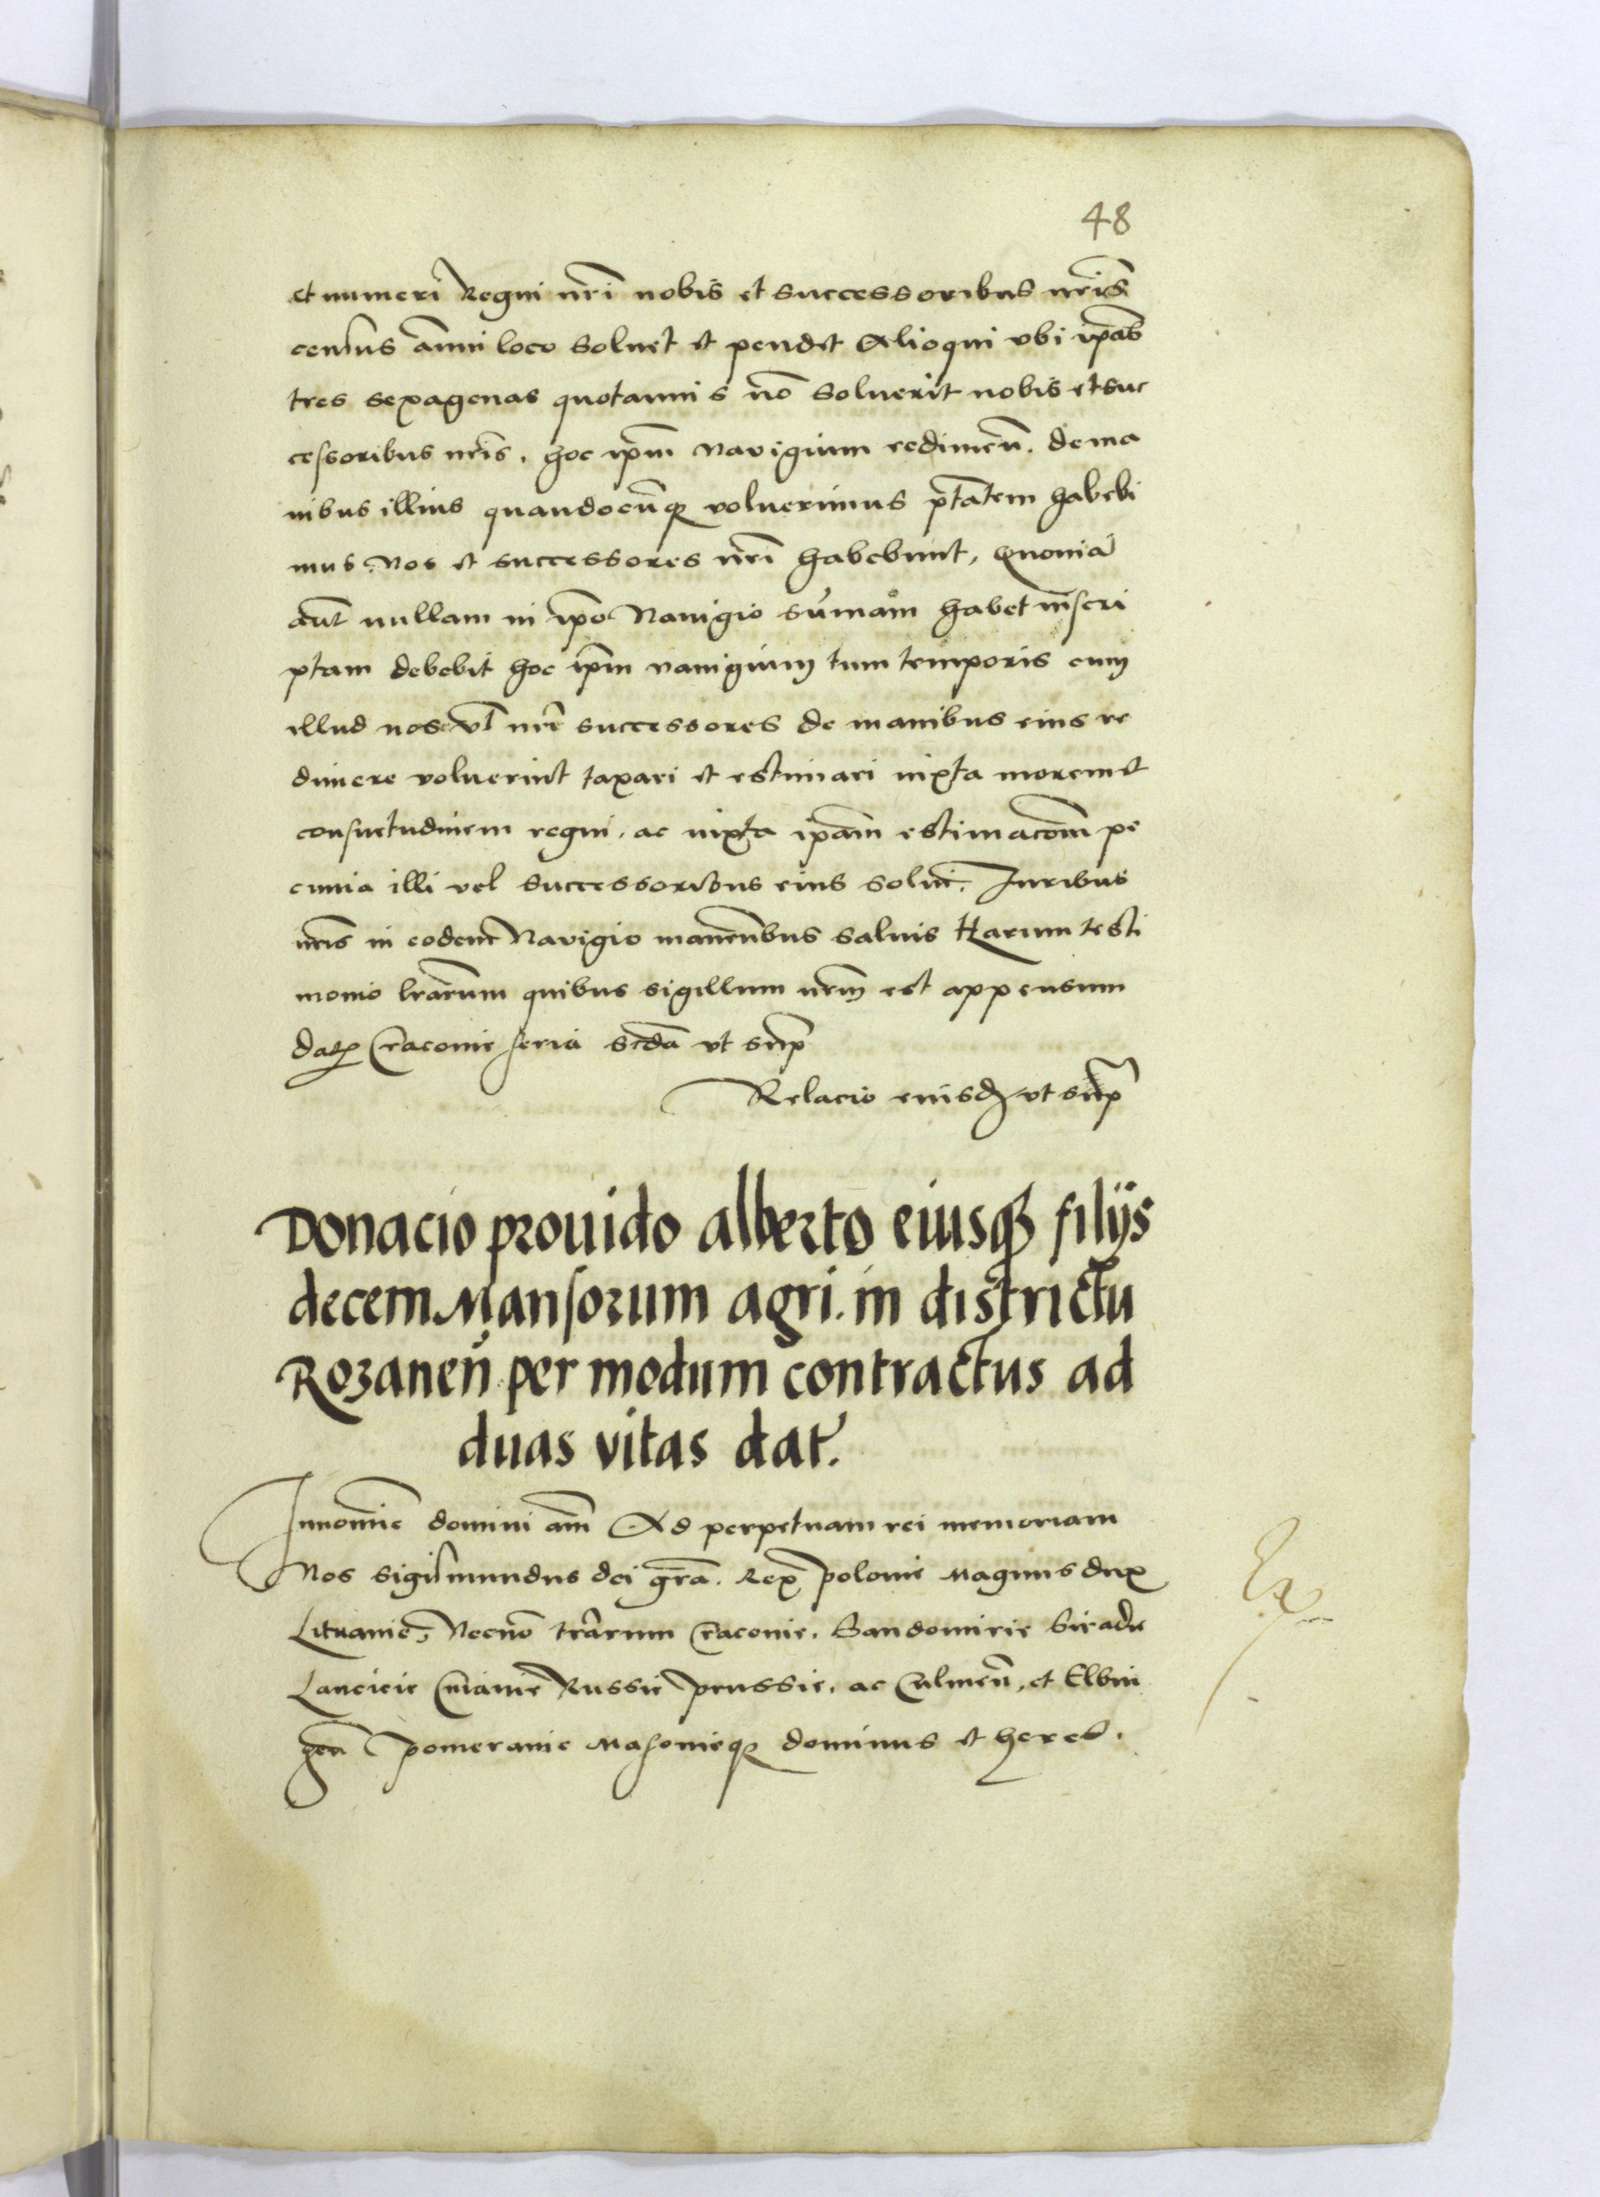 48
et numeri Regni nr̃i nobis et successoribus nr̃is
census anni loco soluet et pendet Alioqui vbi ip̃as
tres sexagenas quotannis nõ soluerit nobis et suc
cessoribus nr̃is, hoc ip̃m Navigium redimeñ. de ma
nibus illius quandocũq₃ voluerimus p̃tatem habebi
mus Nos et successores nr̃i habebunt, Quoniã
aũt nullam in ip̃o Nauigio sum̃am habet inscri
ptam debebit hoc ip̃m nauigium tum temporis cum
illud nos vl̃ nr̃i successores de manibus eius re
dimere voluerint taxari et estimari iuxta morem et
consuetudinem regni, ac iuxta ip̃am estimacõm pe
cunia illi vel successoribus eius solui. Iuribus
nr̃is in eodem Navigio manen̄bus saluis Harum testi
monio lr̃arum quibus sigillum nr̃m est appensum
Dat Cracouie feria sc̃da vt sup̃
Relacio eiusd vt sup̃
Donacio prouido alberto eiusq₃ filijs
decem Mansorum agri. in districtu
Rozaneñ per modum contractus ad
duas vitas dat̃.
In noĩe domini am̃ Ad perpetuam rei memoriam
Nos sigismundus dei gr̃a. Rex polonie Magnus dux
Lituanie, Necnõ terr̃arum Cracouie. Sandomirie Siradie
Lancicie Cuiauie Russie prussie. ac Culmeñ. et Elbin
geñ pomeranie Masouieq₃ dominus et heres.